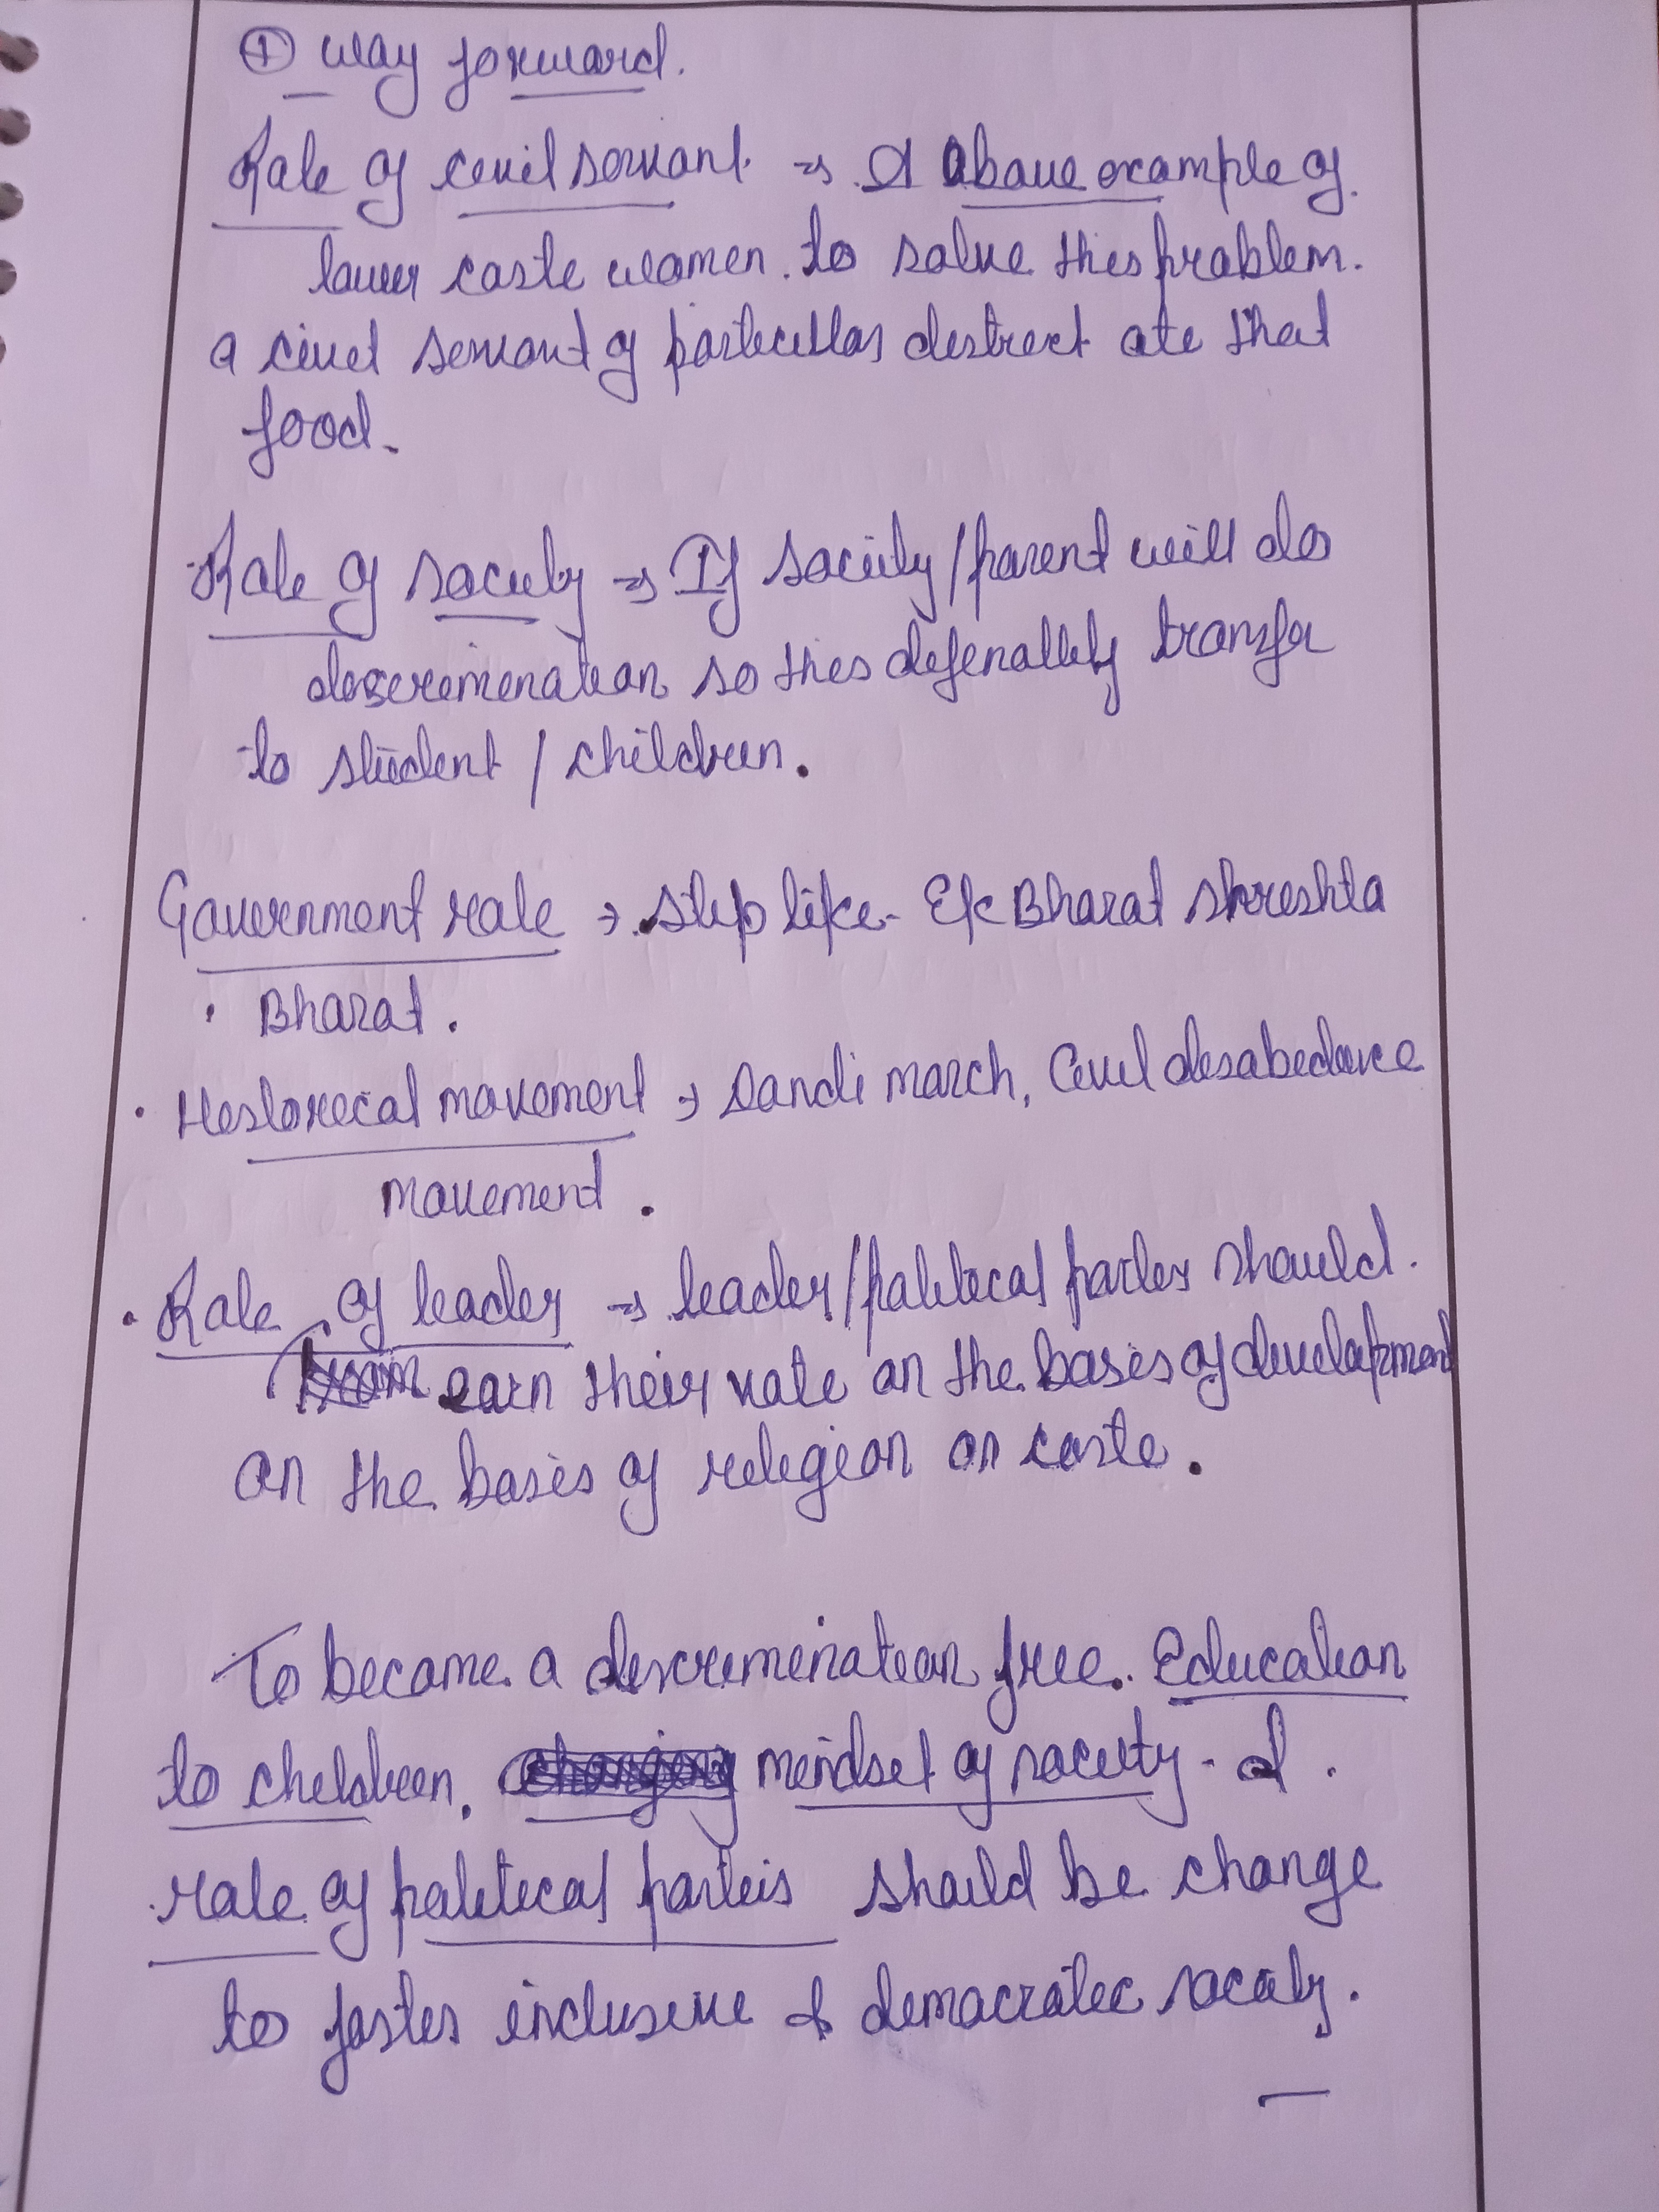 ① way forward.
Role of civil servant ⇒ A above example of
lower caste women. to solve this problem.
a civil servant of particullar district ate that
food.
Role of society ⇒ If society/parent will do
discrimination so this definatlely transfer
to student / children.
Government role → step like - Ek Bharat shreshta
• Bharat.
• Historical movement → Dandi march, Civil disobedence
movement.
• Role of leader ⇒ leader/political parties should.
earn their vote on the basis of development
on the basis of religion or caste.
To become a discrimination free. Education
to children. mindset of society - &.
role of political parteis should be change
to foster inclusive & democratic society.